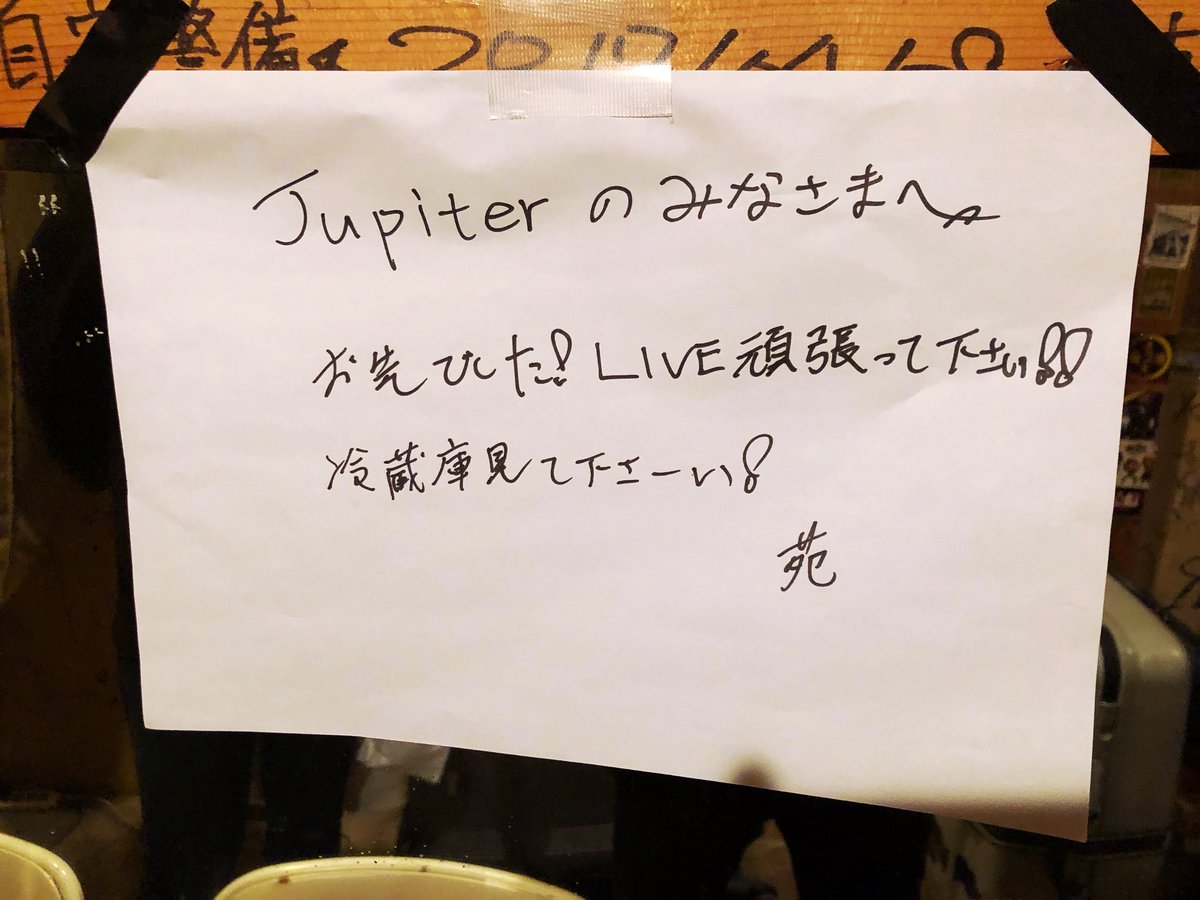 Jupiterのみなさまへ
お先でした! LIVE頑張って下さい!!
冷蔵庫見て下さーい!
苑